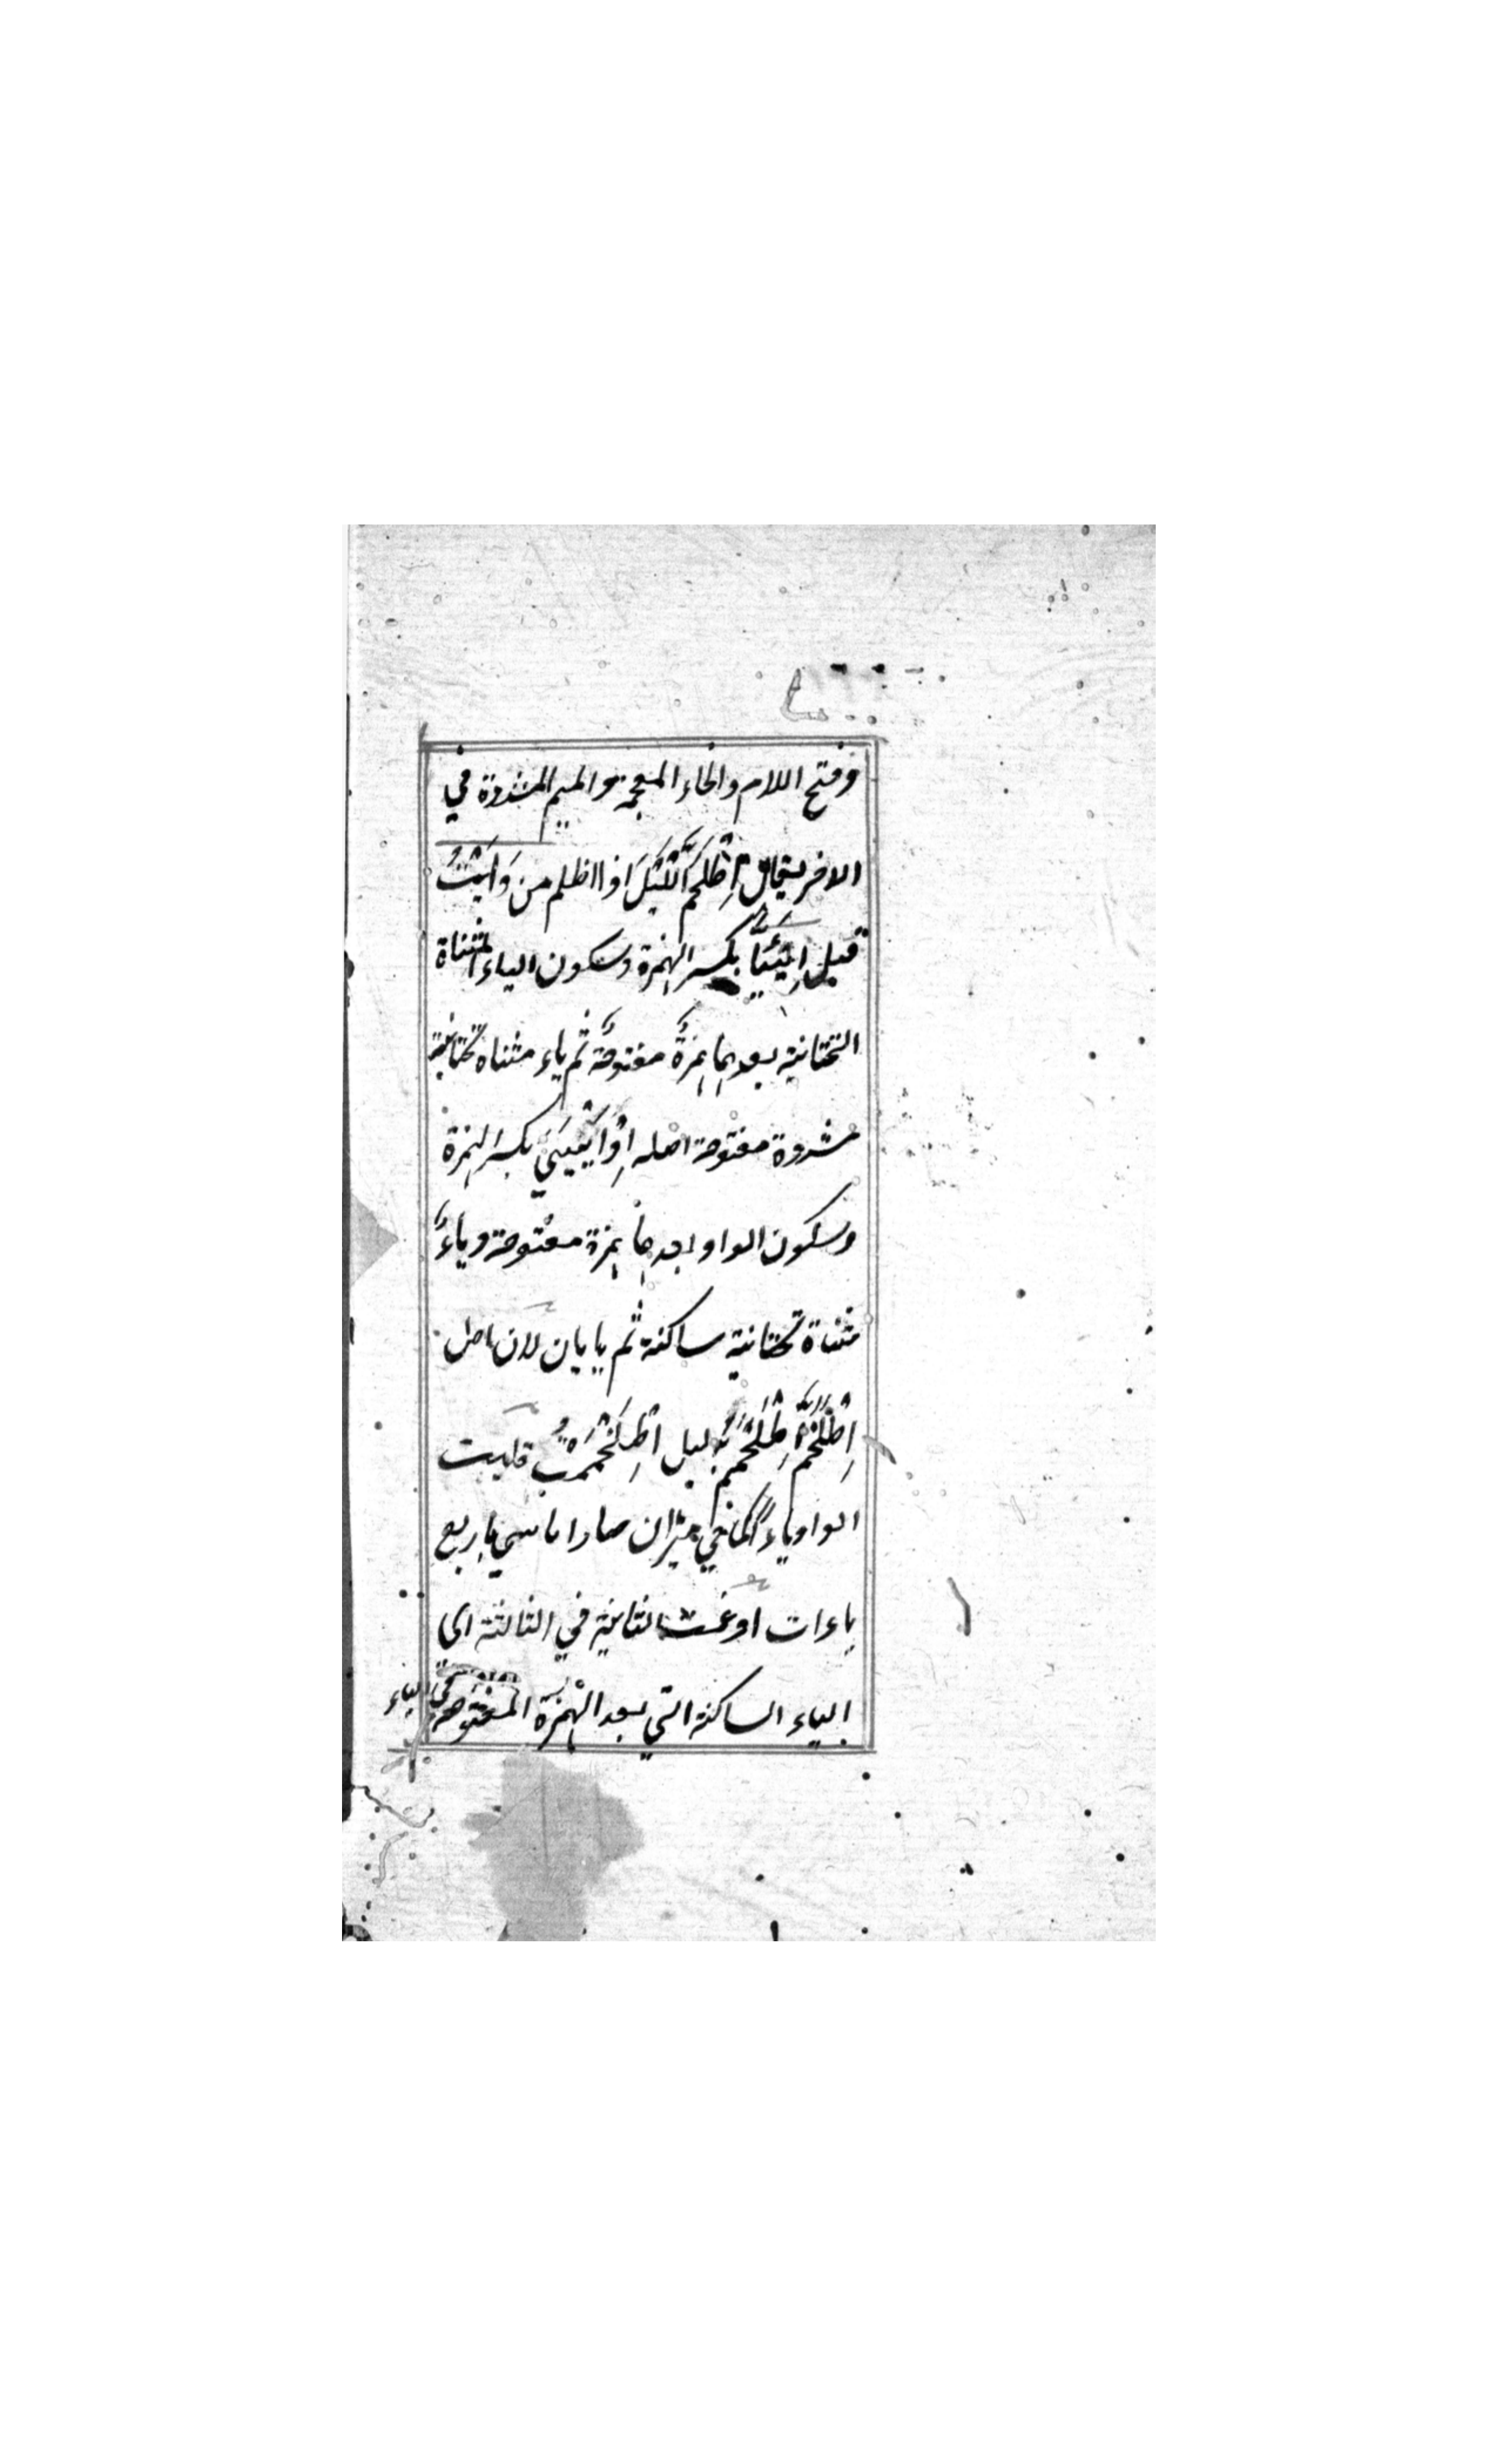 وفتح اللام والخاء المعجمة والميم المشددة في
الاخر يقال اِطْلَخَمَّ اللَّيْلَ اذا اظلم من وَأَيْتُ
قبل اِيْئَيَّا بكسر الهمزة وسكون الياء المثناة
التحتانية بعدها همزةٌ مفتوحةٌ ثم ياء مثناه تحتانية
مشددة مفتوحة اصله اِوْأَيْيَيَ بكسر الهمزة
وسكون الواو بعدها همزة مفتوحة وياءٌ
مثناة تحتانية ساكنة ثم يايان لان اصل
اِطْلَخَمَّ اِطْلَخْمَمَ بدليل اِطْلَخْمَمْتُ قلبت
الواو ياءً كما في ميزان صار ايايي باربع
ياءات ادغمت الثانية في الثالثة اى
الياء الساكنة التي بعد الهمزة المفتوحة في الياء